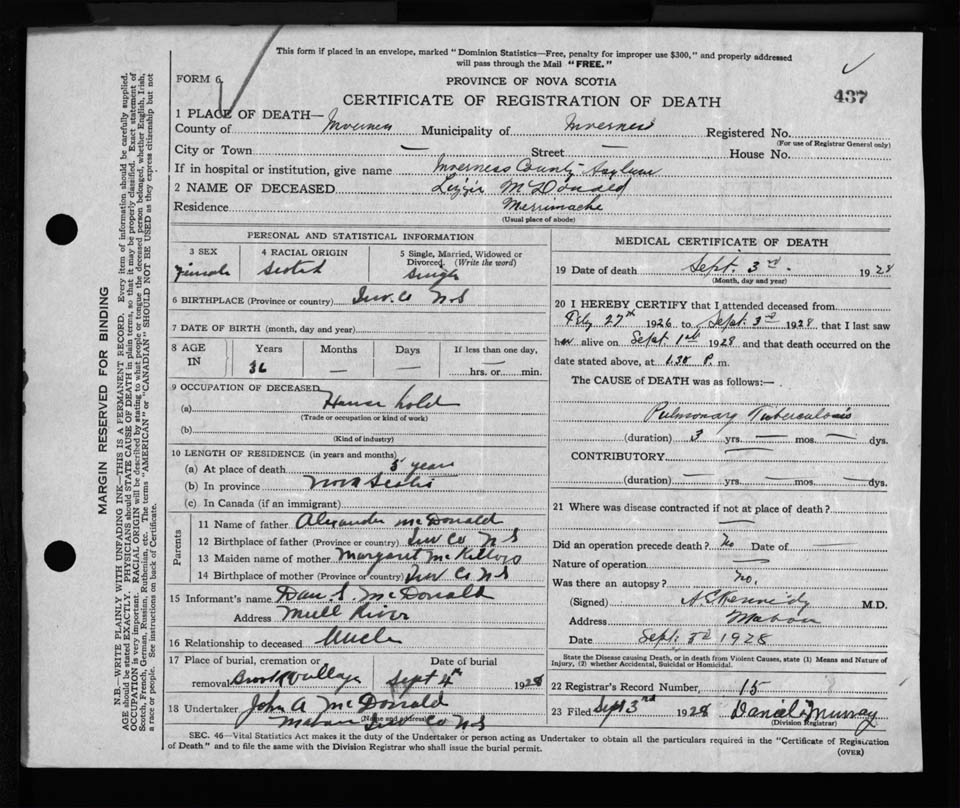 This form if placed in an envelope, marked "Dominion Statistics—Free, penalty for improper use $300," and properly addressed
will pass through the Mail "FREE."
FORM 6
PROVINCE OF NOVA SCOTIA
437
CERTIFICATE OF REGISTRATION OF DEATH
1 PLACE OF DEATH—
County of Inverness Municipality of Inverness Registered No.
(For use of Registrar General only)
City or Town — Street — House No.
If in hospital or institution, give name Inverness County Asylum
2 NAME OF DECEASED Lizzie McDonald
Residence
(Usual place of abode)
PERSONAL AND STATISTICAL INFORMATION
3 SEX 4 RACIAL ORIGIN 5 Single, Married, Widowed or
Divorced. (Write the word)
Female Scotch Single
6 BIRTHPLACE (Province or country) Inv. Co N S
7 DATE OF BIRTH (month, day and year)
8 AGE IN Years Months Days If less than one day,
36 — — hrs. or min.
9 OCCUPATION OF DECEASED
(a) House hold
(Trade or occupation or kind of work)
(b)
(Kind of industry)
10 LENGTH OF RESIDENCE (in years and months)
(a) At place of death 5 years
(b) In province Nova Scotia
(c) In Canada (if an immigrant)
Parents
11 Name of father Alexander McDonald
12 Birthplace of father (Province or country) Inv Co N S
13 Maiden name of mother Margaret
14 Birthplace of mother (Province or country) Inv Co N S
15 Informant's name Dan S. McDonald
Address Mull River
16 Relationship to deceased Uncle
17 Place of burial, cremation or Date of burial
removal Sept 4th 1928
18 Undertaker John A McDonald
(Name and address)
Mabou Inv Co N S
MEDICAL CERTIFICATE OF DEATH
19 Date of death Sept. 3rd. 1928
(Month, day and year)
20 I HEREBY CERTIFY that I attended deceased from
27th 1926 to Sept. 3rd 1928 that I last saw
her alive on Sept 1st 1928 and that death occurred on the
date stated above, at 1.30 P. m.
The CAUSE of DEATH was as follows:—
Pulmonary Tuberculosis
(duration) 3 yrs. — mos. — dys.
CONTRIBUTORY —
(duration) — yrs. — mos. — dys.
21 Where was disease contracted if not at place of death?
—
Did an operation precede death? No Date of
Nature of operation —
Was there an autopsy? No.
(Signed) Kennedy M.D.
Address Mabou
Date Sept. 3rd 1928
State the Disease causing Death, or in death from Violent Causes, state (1) Means and Nature of
Injury, (2) whether Accidental, Suicidal or Homicidal.
22 Registrar's Record Number, 15
23 Filed Sept 3rd 1928 Daniel Murray
(Division Registrar)
SEC. 46—Vital Statistics Act makes it the duty of the Undertaker or person acting as Undertaker to obtain all the particulars required in the "Certificate of Registration
of Death" and to file the same with the Division Registrar who shall issue the burial permit.
(OVER)
MARGIN RESERVED FOR BINDING
N.B.—WRITE PLAINLY WITH UNFADING INK—THIS IS A PERMANENT RECORD. Every item of information should be carefully supplied.
AGE should be stated EXACTLY. PHYSICIANS should STATE CAUSE OF DEATH in plain terms, so that it may be properly classified. Exact statement of
OCCUPATION is very important. RACIAL ORIGIN will be described by stating to what people or tongue the deceased person belonged, whether English, Irish,
Scotch, French, German, Russian, Ruthenian, etc. The terms "AMERICAN" or "CANADIAN" SHOULD NOT BE USED as they express citizenship but not
a race or people. See instructions on back of Certificate.